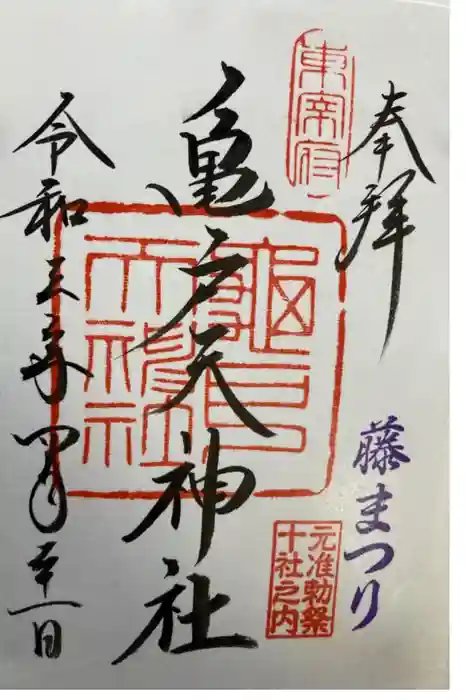 奉拝
藤まつり
東宰府
元准勅祭
十社之内
亀戸天神社
亀戸
天神社
令和三年四月廿一日